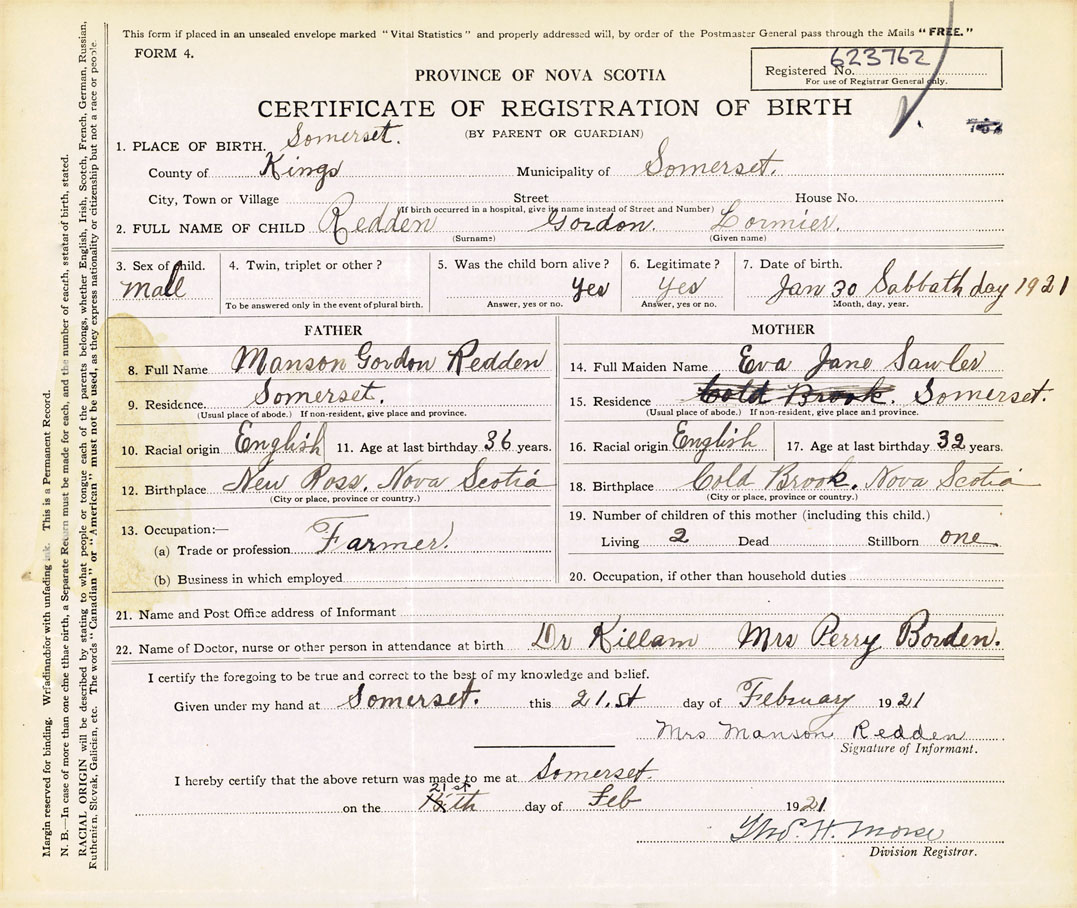 This form if placed in an unsealed envelope marked "Vital Statistics" and properly addressed will, by order of the Postmaster General pass through the Mails "FREE."
FORM 4.
Registered No. 623762
For use of Registrar General only.
PROVINCE OF NOVA SCOTIA
CERTIFICATE OF REGISTRATION OF BIRTH
(BY PARENT OR GUARDIAN)
1. PLACE OF BIRTH. Somerset.
County of Kings Municipality of Somerset.
City, Town or Village Street House No.
(If birth occurred in a hospital, give its name instead of Street and Number)
2. FULL NAME OF CHILD Redden Gordon Lormier.
(Surname) (Given name)
3. Sex of child. 4. Twin, triplet or other? 5. Was the child born alive? 6. Legitimate? 7. Date of birth.
Male yes Yes Jan 30 Sabbath day 1921
To be answered only in the event of plural birth. Answer, yes or no. Answer, yes or no. Month, day, year.
FATHER
8. Full Name Manson Gordon Redden
9. Residence. Somerset.
(Usual place of abode.) If non-resident, give place and province.
10. Racial origin English 11. Age at last birthday 36 years.
12. Birthplace New Ross, Nova Scotia
(City or place, province or country.)
13. Occupation:—
(a) Trade or profession Farmer.
(b) Business in which employed
MOTHER
14. Full Maiden Name Eva Jane Sawler
15. Residence Cold Brook. Somerset.
(Usual place of abode.) If non-resident, give place and province.
16. Racial origin English 17. Age at last birthday 32 years.
18. Birthplace Cold Brook. Nova Scotia
(City or place, province or country.)
19. Number of children of this mother (including this child.)
Living 2 Dead Stillborn one
20. Occupation, if other than household duties
21. Name and Post Office address of Informant
22. Name of Doctor, nurse or other person in attendance at birth Dr Killam Mrs Perry Borden.
I certify the foregoing to be true and correct to the best of my knowledge and belief.
Given under my hand at Somerset. this 21.st day of February 1921
Mrs Manson Redden
Signature of Informant.
I hereby certify that the above return was made to me at Somerset.
21st
on the day of Feb 1921
Tho. H. Morse
Division Registrar.
Margin reserved for binding. Wrfadinndbior with unfading ink. This is a Permanent Record.
N. B.—In case of more than one chae birth, a Separate Return must be made for each, and the number of eacıth, sstatat of birth, stated.
RACIAL ORIGIN will be described by stating to what people or tongue each of the parents belongs, whether English, Irish, Scotch, French, German, Russian,
Ruthenien, Slovak, Galician, etc. The words "Canadian" or "American" must not be used, as they express nationality or citizenship but not a race or people.